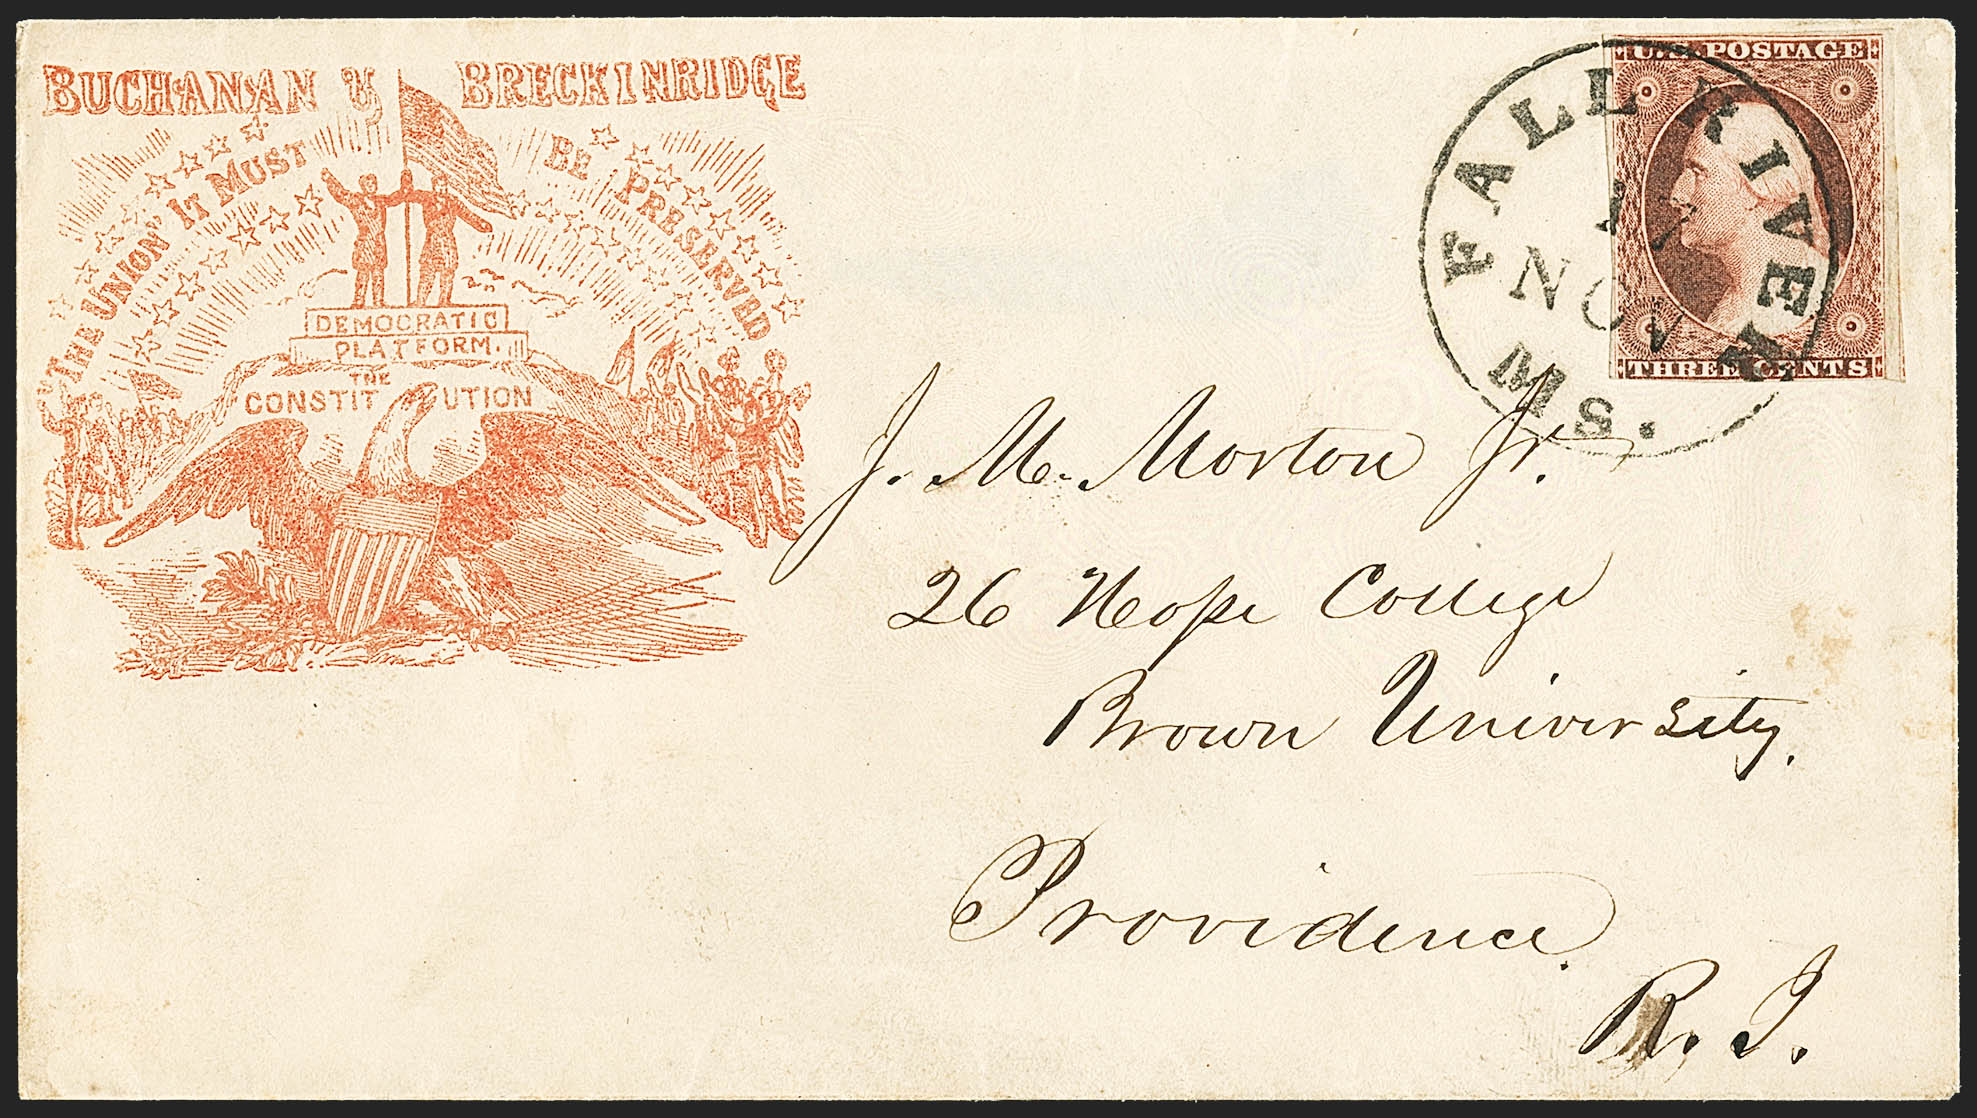 BUCHANAN & BRECKINRIDGE
"THE UNION" IT MUST BE PRESERVED
DEMOCRATIC
PLATFORM.
THE
CONSTITUTION
U.S. POSTAGE
THREE CENTS
FALL RIVER
NOV
MS.
J. M. Morton Jr.
26 Hope College
Brown University.
Providence.
R. I.